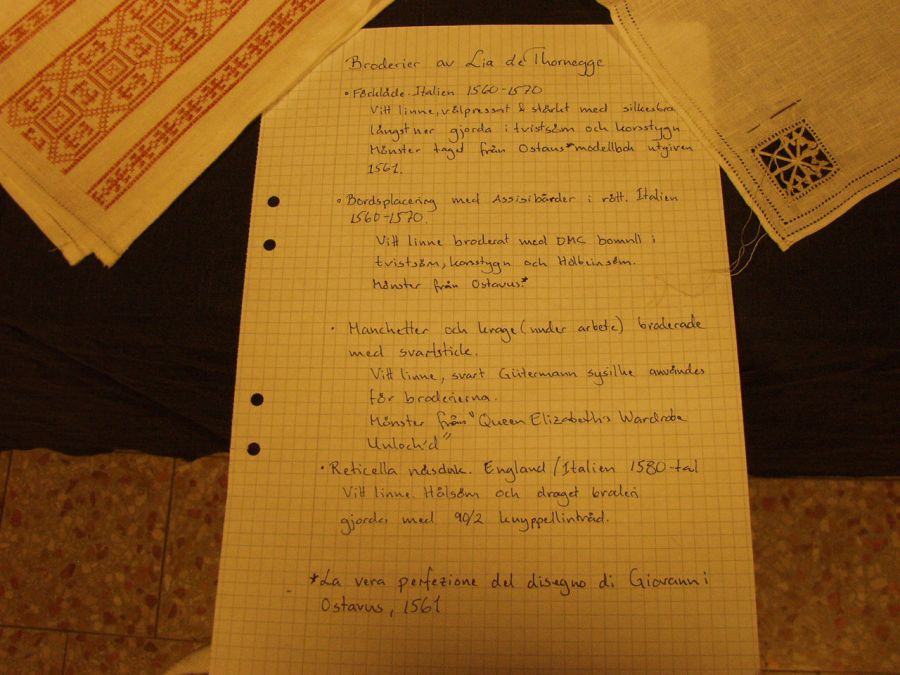 Broderier av Lia de Thornegge
• Förkläde. Italien 1560-1570
Vitt linne, välpressat & stärkt med silkesbrd
längst ner gjorda i tvistsöm och korsstygn
Mönster taget från Ostaus* modellbok utgiven
1561.
• Bordsplacering med Assisibårder i rött. Italien
1560-1570.
Vitt linne broderat med DMC bomull i
tvistsöm, korsstygn och Holbeinsöm.
Mönster från Ostavus.*
• Manchetter och krage (under arbete) broderade
med svartstick.
Vitt linne, svart Gütermann sysilke användes
för broderierna.
Mönster från "Queen Elizabeth's Wardrobe
Unlock'd"
• Reticella näsduk. England/Italien 1580-tal
Vitt linne. Hålsöm och draget broderi
gjorda med 90/2 knyppellintråd.
*La vera perfezione del disegno di Giovanni
Ostavus, 1561